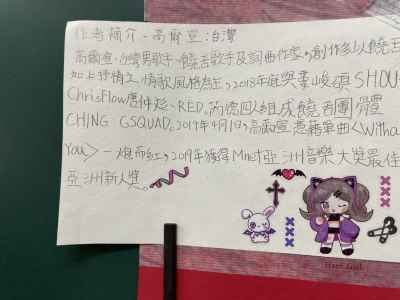 作者簡介-高爾宣:台灣
高爾宣,台灣男歌手、饒舌歌手及詞曲作家,創作多以饒舌
加上抒情文、情歌風格為主,2018年底與婁峻碩SHOU
ChrisFlow唐仲彣、RED.芮德四人組成饒舌團體
CHING GSQUAD。2019年4月1日,高爾宣憑藉單曲<Without
You>一炮而紅,2019年獲得Mnet亞洲音樂大獎最佳
亞洲新人獎。